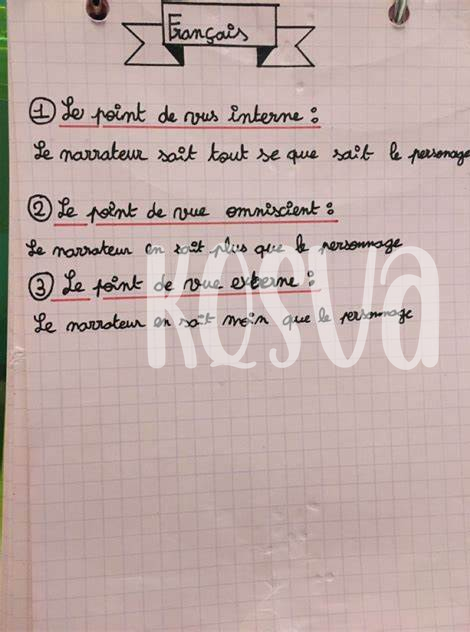 Français
① Le point de vus interne :
Le narrateur sait tout se que sait le personage
② Le point de vue omniscient :
Le narrateur en sait plus que le personnage
③ Le point de vue externe :
Le narrateur en sait moin que le personnage
KOSVA